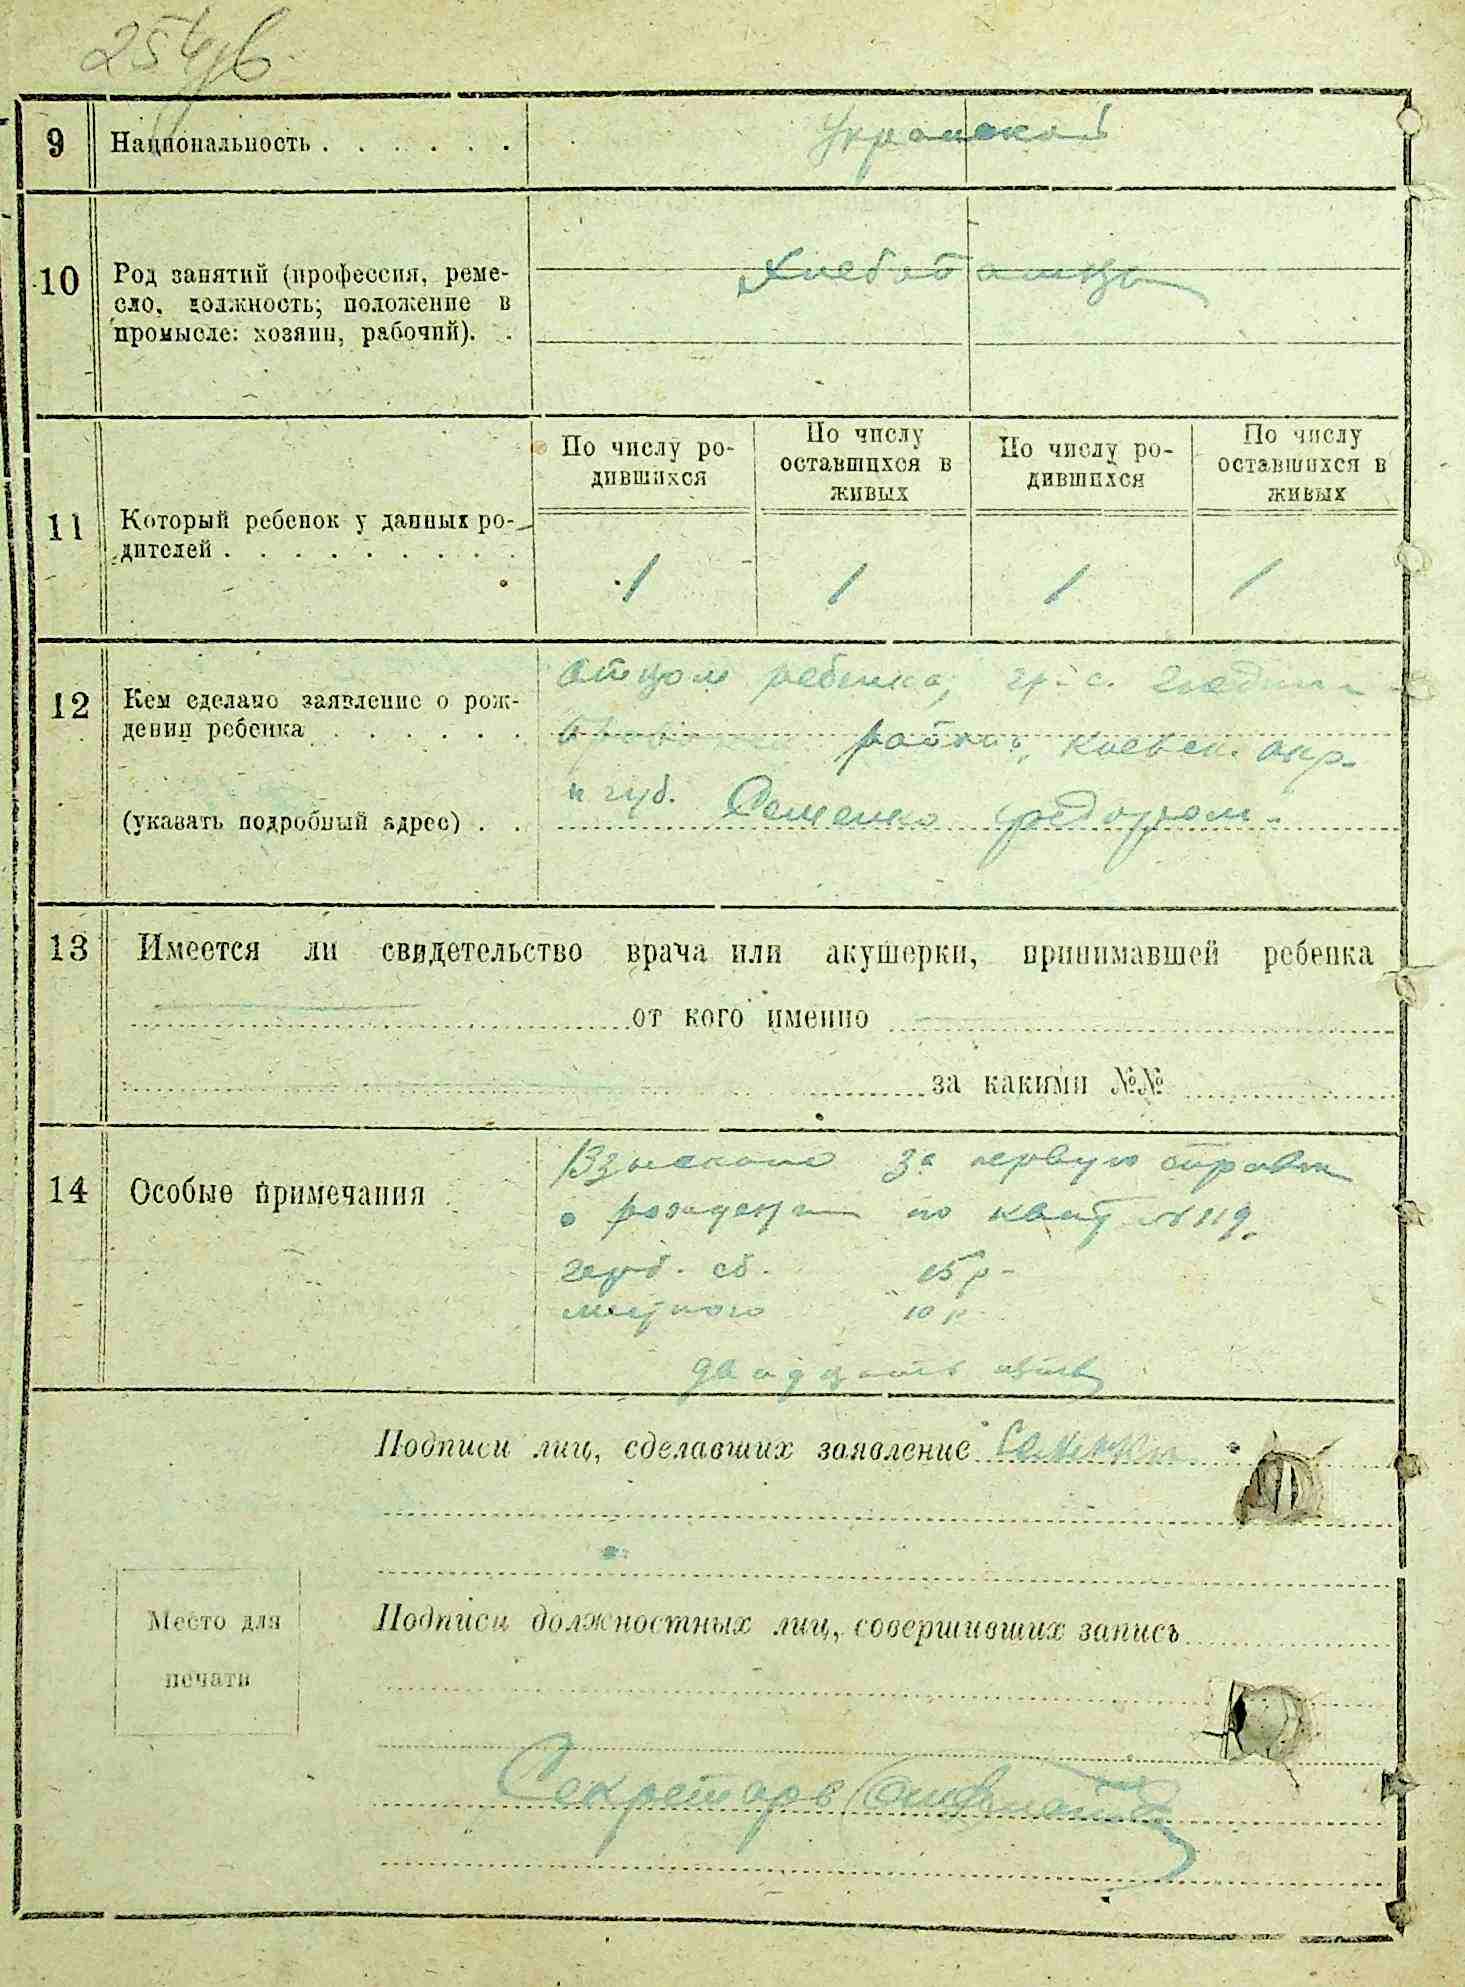 9 Национальность . . . . . .
Украинской
10 Род занятий (профессия, реме-
сло, должность; положение в
промысле: хозяин, рабочий). .
Хлебопашцы
По числу ро-
дившихся
По числу
оставшихся в
живых
По числу ро-
дившихся
По числу
оставшихся в
живых
11 Который ребенок у данных ро-
дителей . . . . . . . . .
1 1 1 1
12 Кем сделано заявление о рож-
дении ребенка . . . . . .
(указать подробный адрес) . .
Отцом ребенка, гр. с.
района, Киевск. окр.
и губ. Семенко Федором.
13 Имеется ли свидетельство врача или акушерки, принимавшей ребенка
от кого именно
за какими №№
14 Особые примечания
Взыскано за первую
о рождении по квит. № 119.
герб. сб. 15 р-
местного 10 р
двадцать пять
Подписи лиц, сделавших заявление
Подписи должностных лиц, совершивших запись
Место для
печати
Секретарь